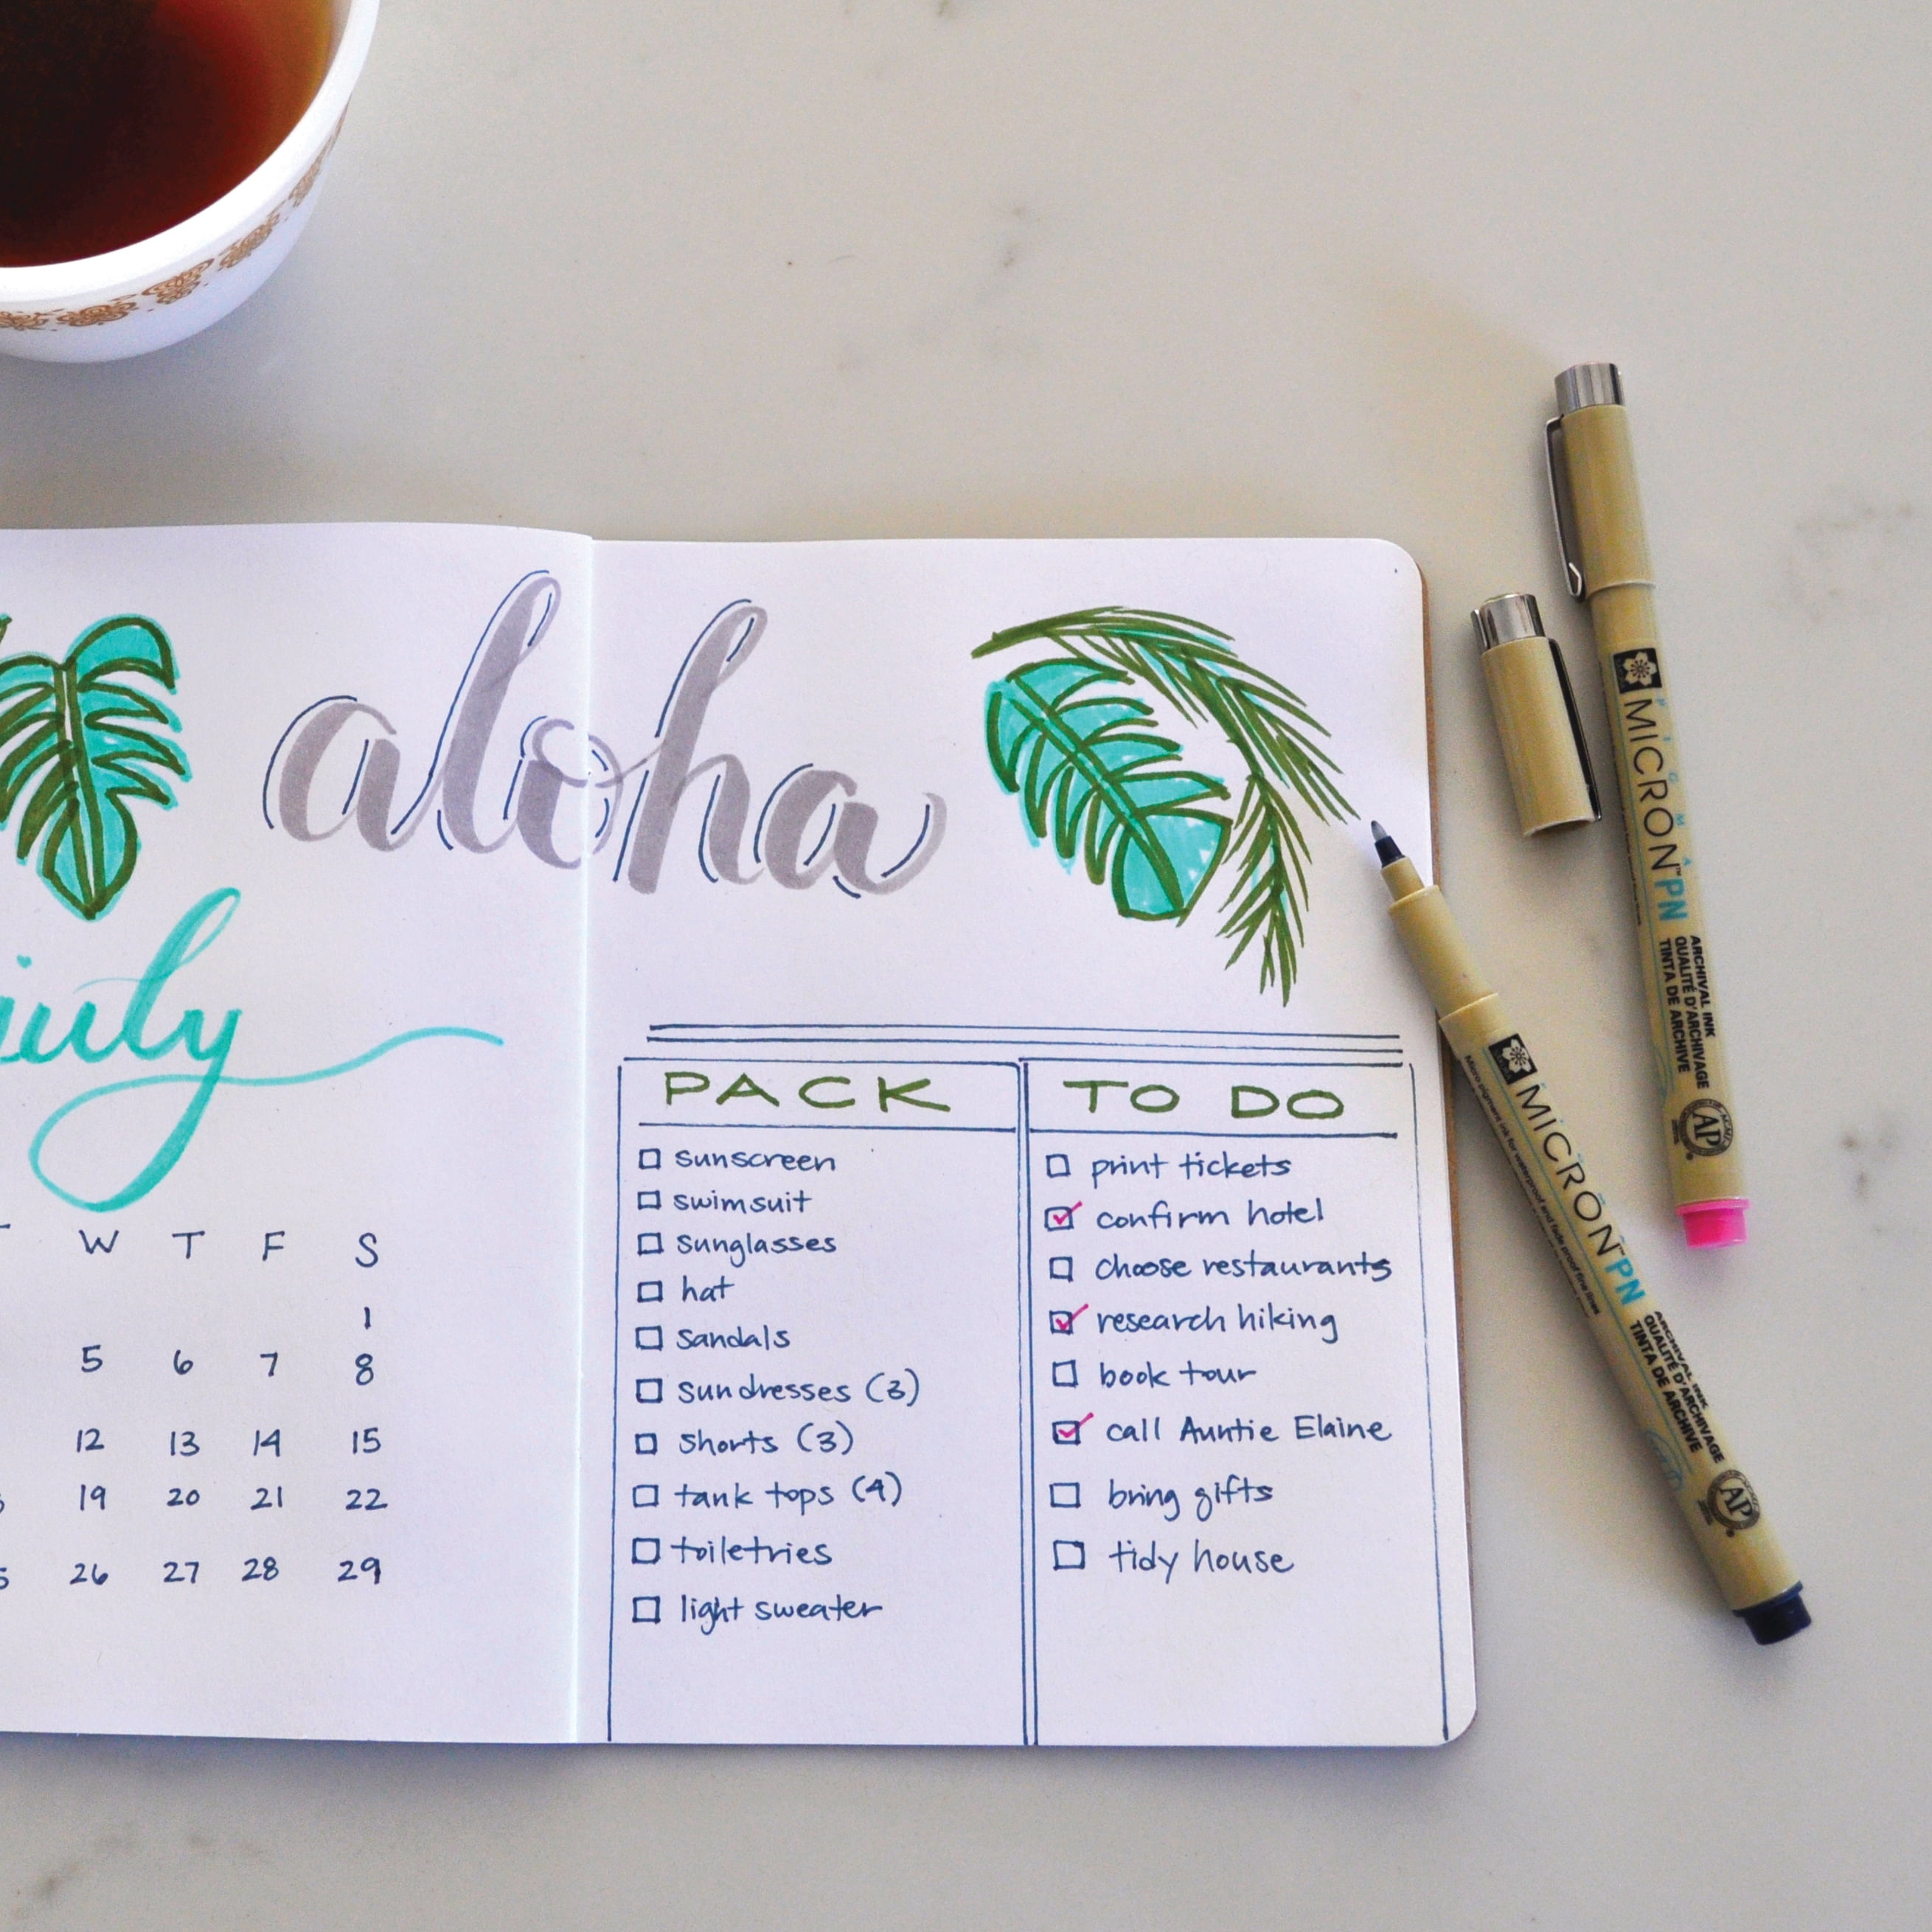 aloha
july
W T F S
1
5 6 7 8
12 13 14 15
19 20 21 22
26 27 28 29
PACK
sunscreen
swimsuit
sunglasses
hat
sandals
sundresses (3)
shorts (3)
tank tops (4)
toiletries
light sweater
TO DO
print tickets
confirm hotel
choose restaurants
research hiking
book tour
call Auntie Elaine
bring gifts
tidy house
PIGMA
MICRON™ PN
ARCHIVAL INK
QUALITÉ D'ARCHIVAGE
TINTA DE ARCHIVE
AP
MICRON™ PN
Micro pigment ink for waterproof and fade proof fine lines
ARCHIVAL INK
QUALITÉ D'ARCHIVAGE
TINTA DE ARCHIVE
AP